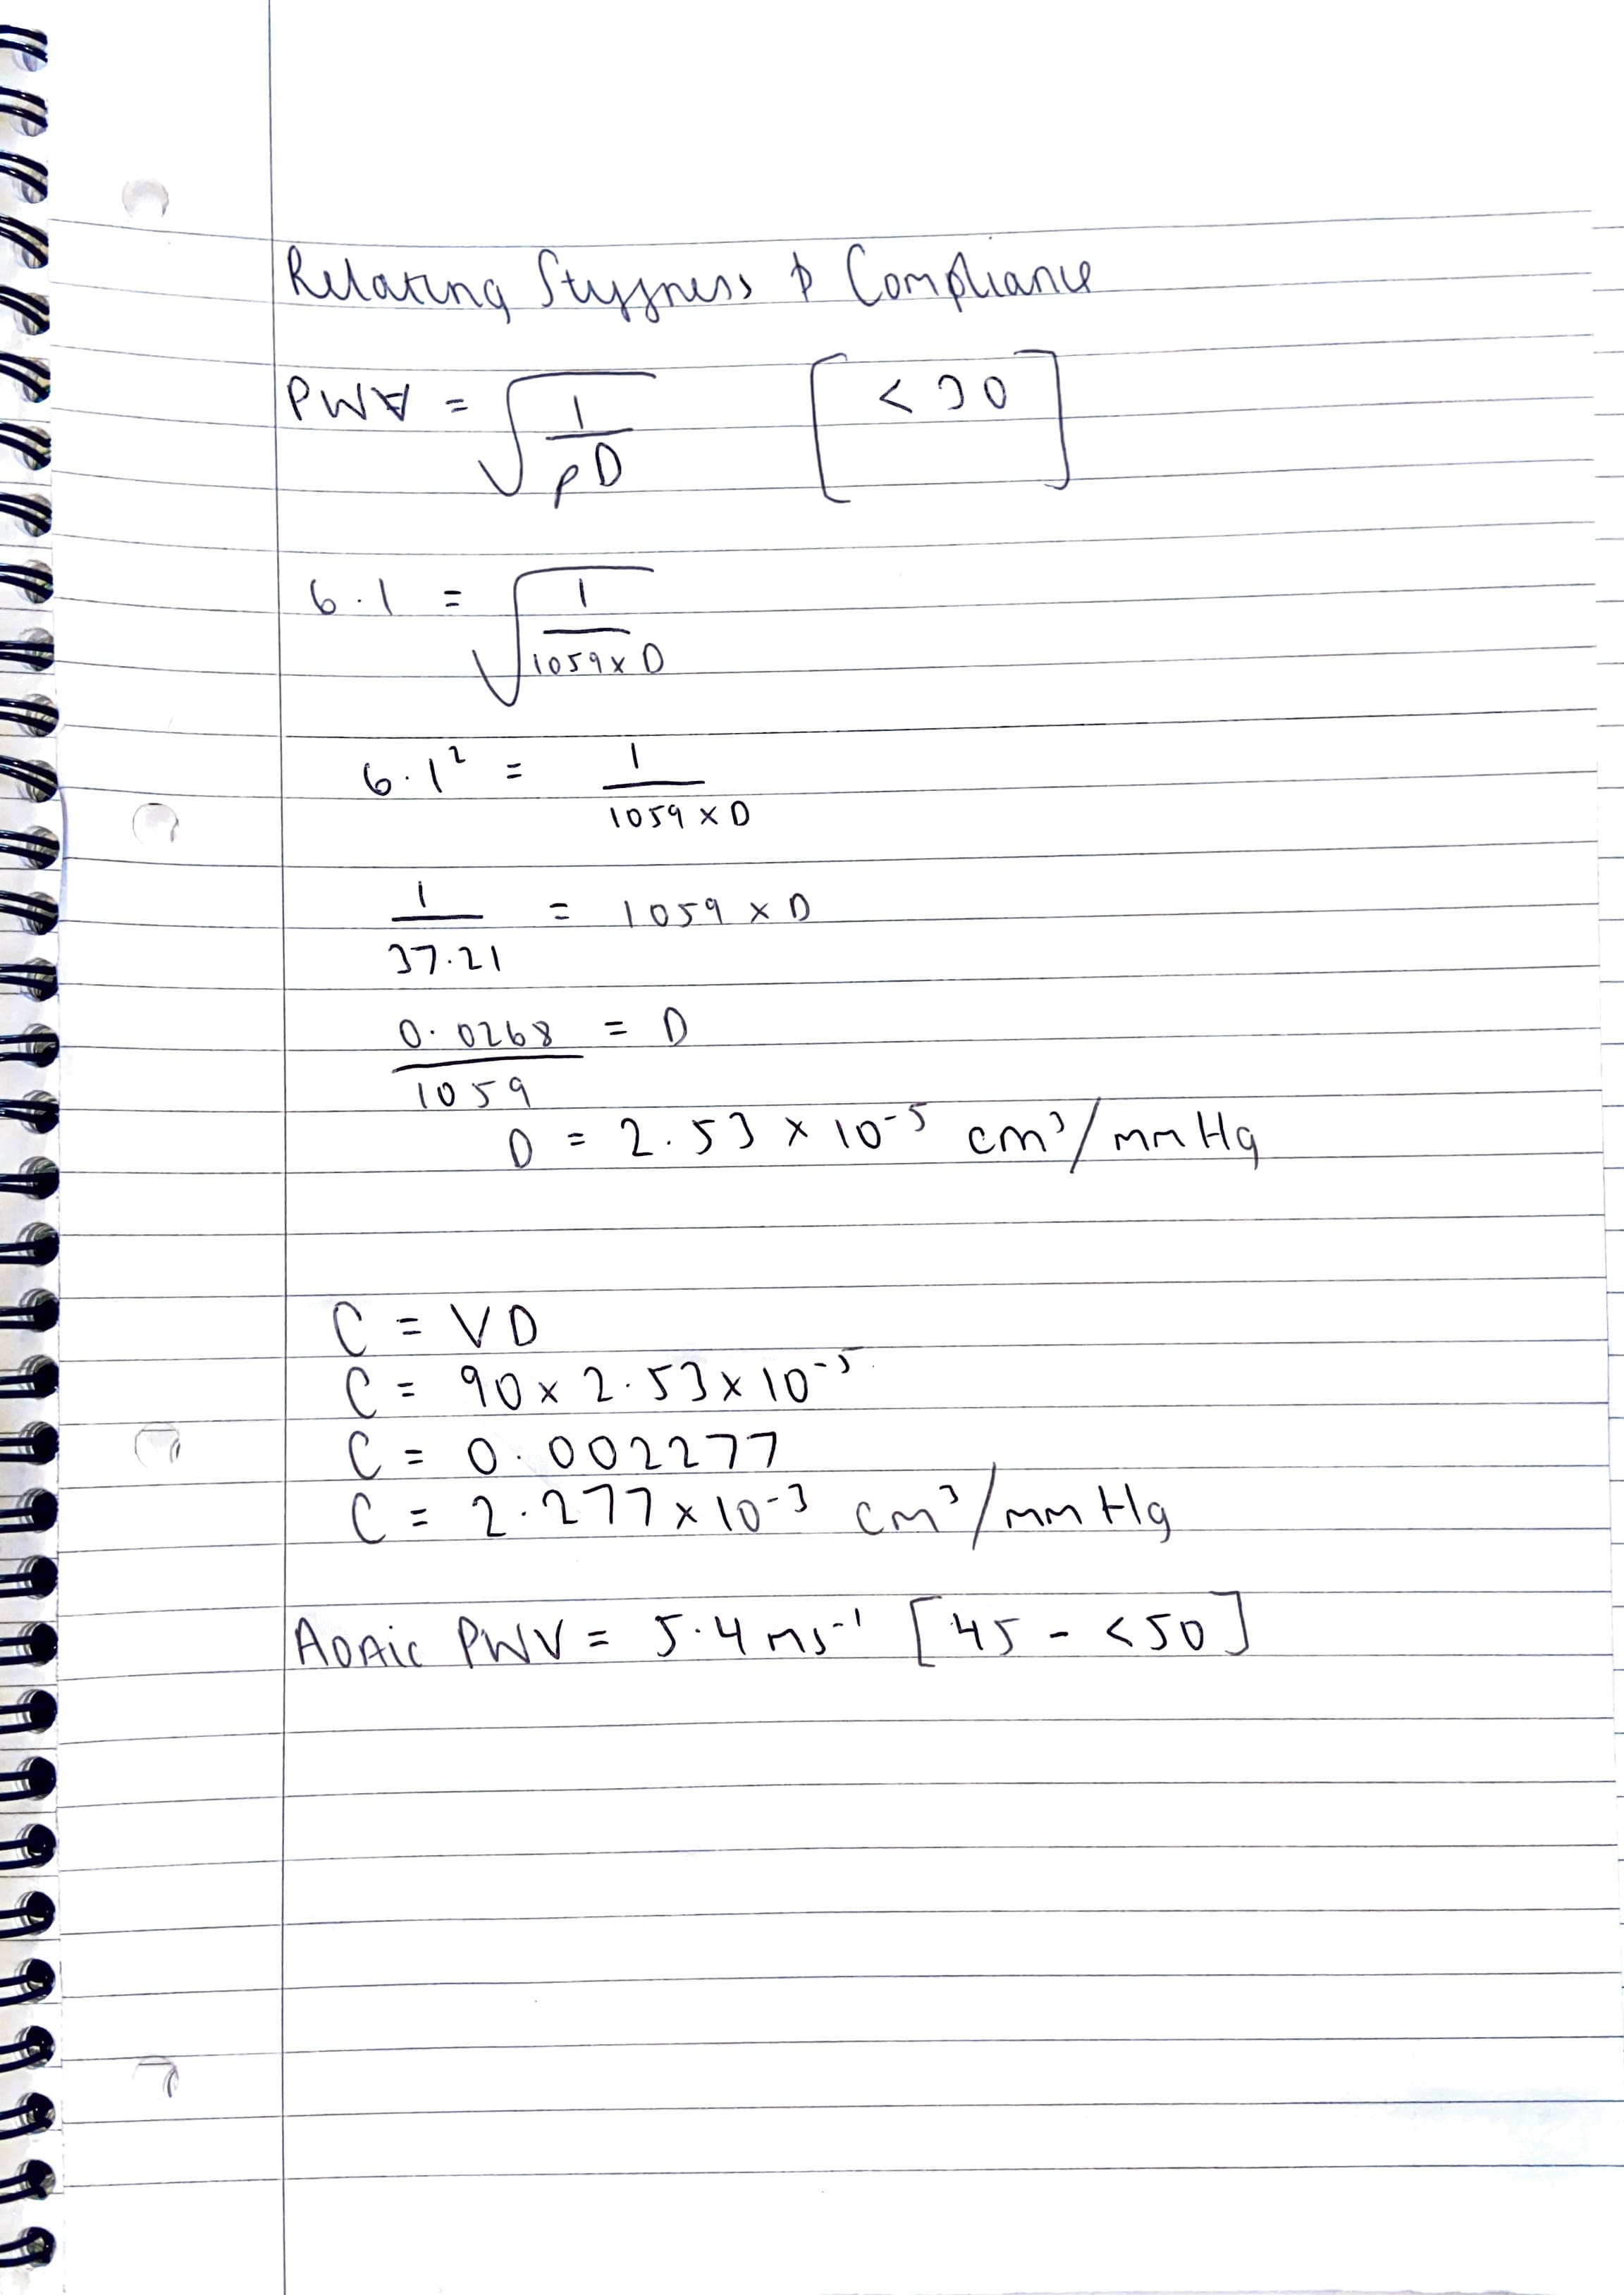 Relating Stiffness & Compliance
PWV = √(1/ρD) [< 30]
6.1 = √(1/1059 x D)
6.1² = 1/1059 x D
1/37.21 = 1059 x D
0.0268/1059 = D
D = 2.53 x 10⁻⁵ cm³/mmHg
C = VD
C = 90 x 2.53 x 10⁻⁵
C = 0.002277
C = 2.277 x 10⁻³ cm³/mmHg
Aortic PWV = 5.4 ms⁻¹ [45 - <50]